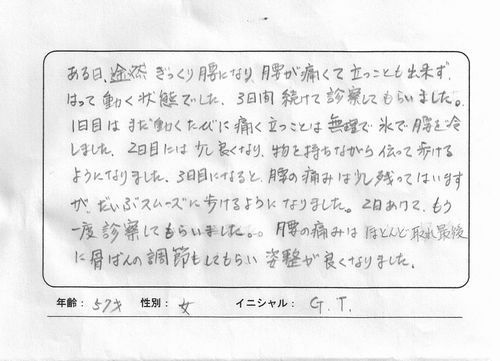 ある日、途然ぎっくり腰になり腰が痛くて立つことも出来ず、
はって動く状態でした。3日間続けて診察してもらいました。
1日目はまだ動くたびに痛く立つことは無理で氷で腰を冷
しました。2日目には少し良くなり、物を持ちながら伝って歩ける
ようになりました。3日目になると、腰の痛みは少し残ってはいます
が、だいぶスムーズに歩けるようになりました。2日あけて、もう
一度診察してもらいました。腰の痛みはほとんど取れ最後
に骨ばんの調節もしてもらい姿整が良くなりました。
年齢:57才 性別:女 イニシャル:G.T.